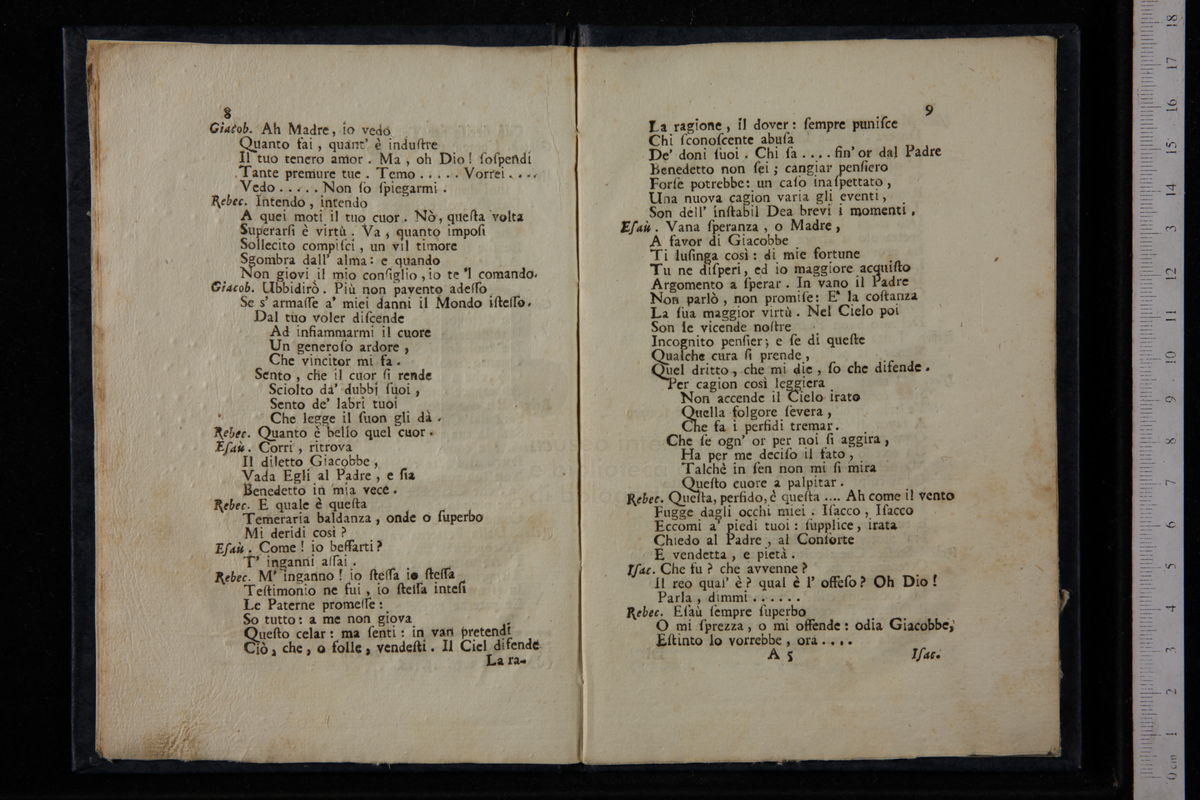 8
Giacob. Ah Madre, io vedo
Quanto fai, quant' è induſtre
Il tuo tenero amor. Ma, oh Dio! ſoſpendi
Tante premure tue. Temo ..... Vorrei....
Vedo ..... Non ſo ſpiegarmi.
Rebec. Intendo, intendo
A quei moti il tuo cuor. Nò, queſta volta
Superarſi è virtù. Va, quanto impoſi
Sollecito compiſci, un vil timore
Sgombra dall' alma: e quando
Non giovi il mio conſiglio, io te 'l comando.
Giacob. Ubbidirò. Più non pavento adeſſo
Se s' armaſſe a' miei danni il Mondo iſteſſo.
Dal tuo voler diſcende
Ad infiammarmi il cuore
Un generoſo ardore,
Che vincitor mi fa.
Sento, che il cuor ſi rende
Sciolto da' dubbj ſuoi,
Sento de' labri tuoi
Che legge il ſuon gli dà.
Rebec. Quanto è bello quel cuor.
Eſaù. Corri, ritrova
Il diletto Giacobbe,
Vada Egli al Padre, e ſia
Benedetto in mia vece.
Rebec. E quale è queſta
Temeraria baldanza, onde o ſuperbo
Mi deridi così?
Eſaù. Come! io beffarti?
T' inganni aſſai.
Rebec. M' inganno! io ſteſſa io ſteſſa
Teſtimonio ne fui, io ſteſſa inteſi
Le Paterne promeſſe:
So tutto: a me non giova
Queſto celar: ma ſenti: in van pretendi
Ciò, che, o folle, vendeſti. Il Ciel difende
La ra-
9
La ragione, il dover: ſempre puniſce
Chi ſconoſcente abuſa
De' doni ſuoi. Chi ſa .... fin' or dal Padre
Benedetto non ſei; cangiar penſiero
Forſe potrebbe: un caſo inaſpettato,
Una nuova cagion varia gli eventi,
Son dell' inſtabil Dea brevi i momenti.
Eſaù. Vana ſperanza, o Madre,
A favor di Giacobbe
Ti luſinga così: di mie fortune
Tu ne diſperi, ed io maggiore acquiſto
Argomento a ſperar. In vano il Padre
Non parlò, non promiſe: E' la coſtanza
La ſua maggior virtù. Nel Cielo poi
Son le vicende noſtre
Incognito penſier; e ſe di queſte
Qualche cura ſi prende,
Quel dritto, che mi diè, ſo che difende.
Per cagion così leggiera
Non accende il Cielo irato
Quella folgore ſevera,
Che fa i perfidi tremar.
Che ſe ogn' or per noi ſi aggira,
Ha per me deciſo il fato,
Talchè in ſen non mi ſi mira
Queſto cuore a palpitar.
Rebec. Queſta, perfido, è queſta .... Ah come il vento
Fugge dagli occhi miei. Iſacco, Iſacco
Eccomi a' piedi tuoi: ſupplice, irata
Chiedo al Padre, al Conſorte
E vendetta, e pietà.
Iſac. Che fu? che avvenne?
Il reo qual' è? qual è l' offeſo? Oh Dio!
Parla, dimmi ......
Rebec. Eſaù ſempre ſuperbo
O mi ſprezza, o mi offende: odia Giacobbe,
Eſtinto lo vorrebbe, ora ....
A 5
Iſac.